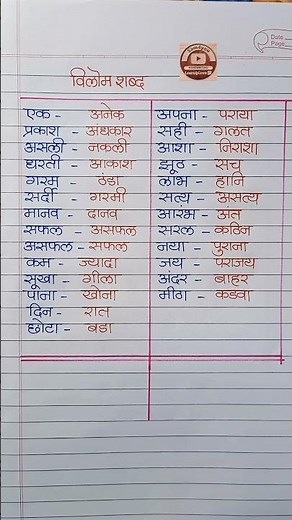 Date
Page
विलोम शब्द
एक - अनेक
प्रकाश - अंधकार
असली - नकली
धरती - आकाश
गरम - ठंडा
सर्दी - गरमी
मानव - दानव
सफल - असफल
असफल - सफल
कम - ज्यादा
सूखा - गीला
पाना - खोना
दिन - रात
छोटा - बडा
अपना - पराया
सही - गलत
आशा - निराशा
झूठ - सच
लाभ - हानि
सत्य - असत्य
आरंभ - अंत
सरल - कठिन
नया - पुराना
जय - पराजय
अंदर - बाहर
मीठा - कडवा